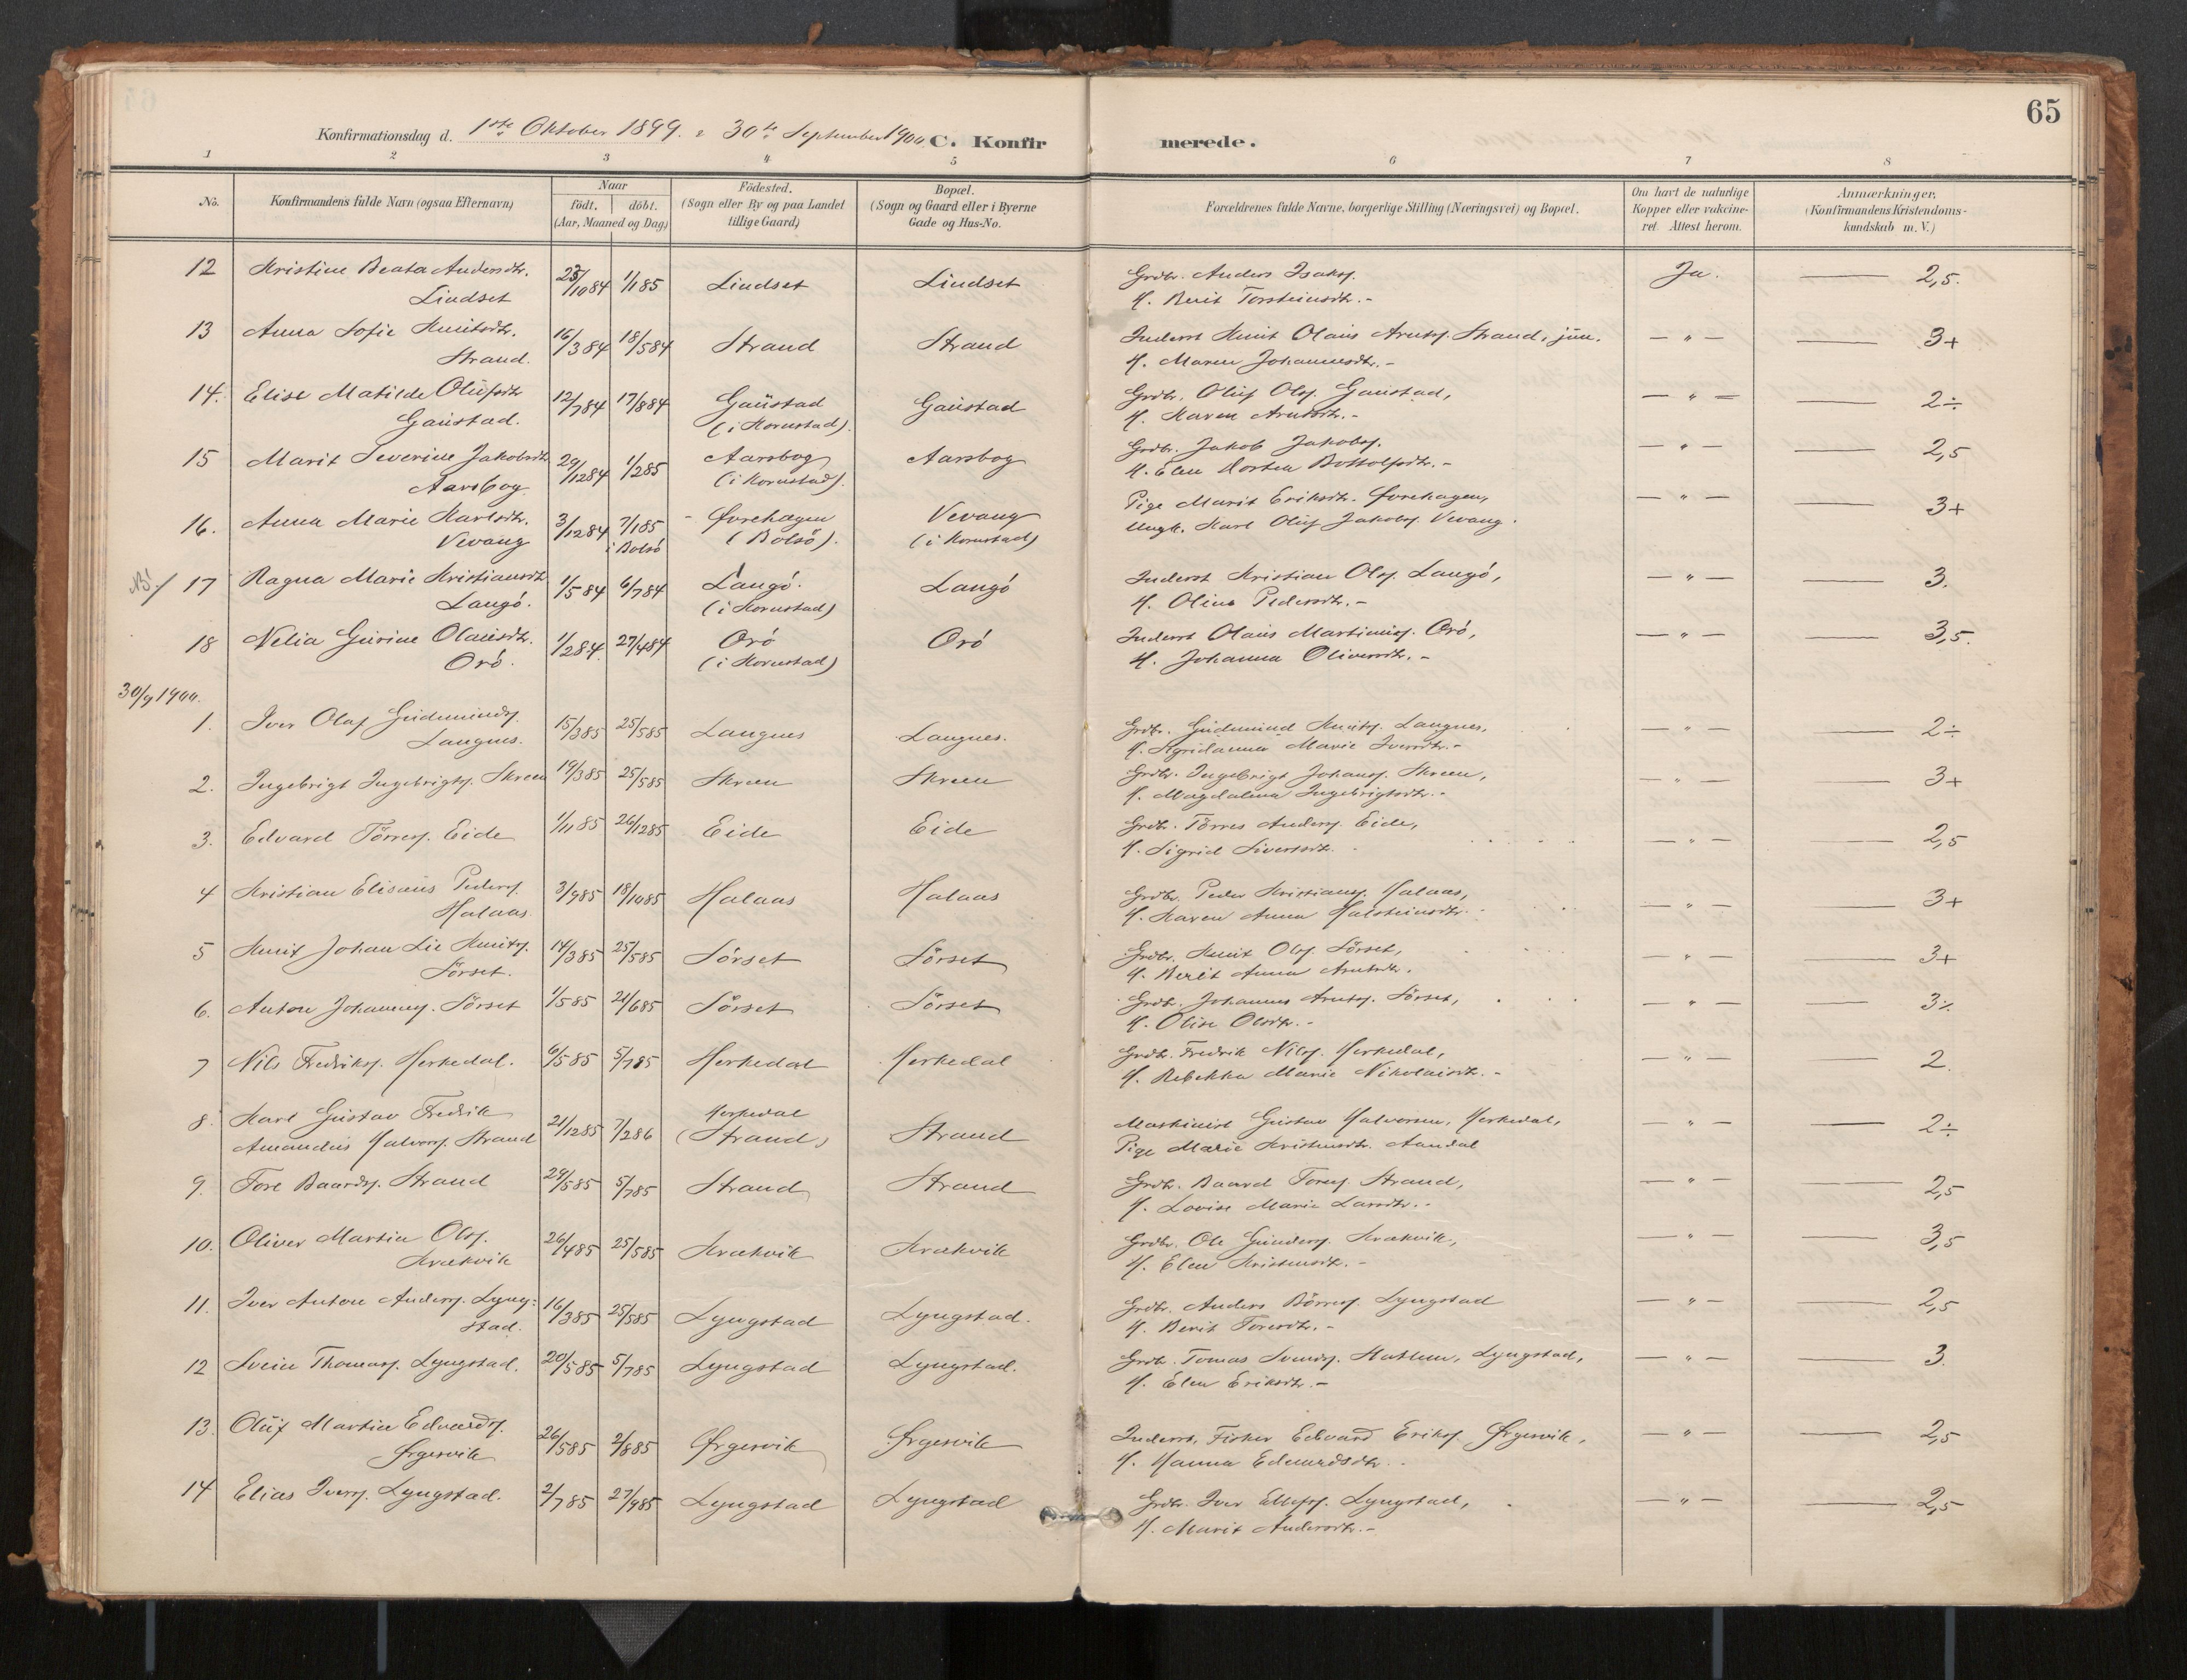 65
Konfirmationsdag d. 1ste Oktober 1899. & 30te September 1900. C. Konfir merede.
1 2 3 4 5 6 7 8
No.
Konfirmandens fulde Navn (ogsaa Efternavn)
Naar
födt. döbt.
(Aar, Maaned og Dag)
Födested.
(Sogn eller By og paa Landet
tillige Gaard)
Bopæl.
(Sogn og Gaard eller i Byerne
Gade og Hus-No.
Forældrenes fulde Navne, borgerlige Stilling (Næringsvei) og Bopæl.
Om havt de naturlige
Kopper eller vakcine-
ret. Attest herom.
Anmærkninger.
(Konfirmandens Kristendoms-
kundskab m. V.)
12 Kristine Beata Andersdtr. 23/10 84 1/1 85 Lindset Lindset Grdbr. Anders Isaks. Ja. — 2,5.
Lindset H. Berit Torsteinsdtr. -
13 Anna Sofie Knutsdtr. 16/3 84 18/5 84 Strand Strand Inderst Knut Olaus Arnts. Strand, jun. — " — — 3+
Strand. H. Maren Johannesdtr. -
14. Elise Matilde Olufsdtr 12/7 84 17/8 84 Gaustad Gaustad Grdbr. Oluf Ols. Gaustad, — " — — 2÷
Gaustad. (i Kornstad). H. Karen Arntsdtr. -
15 Marit Severine Jakobsdtr 29/12 84 1/2 85 Aarsbog Aarsbog Grdbr. Jakob Jakobs. — " — — 2,5
Aarsbog (i Kornstad). H. Elen Bottolfsdtr. -
16. Anna Marie Karlsdtr. 3/12 84 7/1 85 Ørehagen Vevang Pige Marit Eriksdtr. Ørehagen, — " — — 3+
Vevang i Bolsö (Bolsö). (i Kornstad) Ungk. Karl Oluf Jakobs. Vevang.
NB!/ 17 Ragna Marie Kristiansdtr 1/5 84 6/7 84 Langö. Langö Inderst Kristian Ols. Langö, — " — — 3.
Langö. (i Kornstad) H. Olina Pedersdtr. -
18 Nelia Gurine Olausdtr. 1/2 84. 27/4 84 Orö Orö Inderst Olaus Martinus. Orö, — " — — 3,5.
Orö. (i Kornstad) H. Johanna Oliversdtr. -
30/9 1900.
1. Iver Olaf Gudmunds. 15/3 85 25/5 85 Langnes Langnes. Grdbr. Gudmund Knuts. Langnes, — " — — 2÷
Langnes. H. Marie Iversdtr. -
2. Ingebrigt Ingebrigts. Skreen 19/3 85 25/5 85 Skreen Skreen Grdbr. Ingebrigt Johans. Skreen, — " — — 3+
H. Magdalena Ingebrigtsdtr. -
3. Edvard Törres. Eide 1/11 85 26/12 85 Eide Eide Grdbr. Törres Anders. Eide, — " — — 2,5
H. Sigrid Sivertsdtr. -
4 Kristian Elisæus Peders. 3/9 85 18/10 85 Halaas Halaas Grdbr. Peder Kristians. Halaas, — " — — 3+
Halaas. H. Karen Anna Halsteinsdtr. -
5 Knut Johan Lie Knuts. 14/3 85 25/5 85 Sörset Sörset Grdbr. Knut Ols. Sörset, — " — — 3+
Sörset. H. Berit Anna Arntsdtr.
6. Anton Johannes. Sörset 1/5 85 21/6 85 Sörset Sörset Grdbr. Johannes Arnts. Sörset, — " — — 3÷
H. Olise Olsdtr. -
7 Nils Fredriks. Herkedal. 6/5 85 5/7 85 Herkedal Herkedal Grdbr. Fredrik Nils. Herkedal, — " — — 2.
H. Rebekka Marie Nikolaisdtr. -
8. Karl Gustav Fredrik 21/12 85 7/2 86 Herkedal Strand Maskinist Gustav Halvorsen, Herkedal, — " — — 2÷
Amandus Halvors. Strand (Strand) Pige Marie Kristensdtr. Aandal
9. Tore Baards. Strand 29/5 85 5/7 85 Strand Strand Grdbr. Baard Tores. Strand, — " — — 2,5
H. Lovise Marie Larsdtr. -
10. Oliver Martin Ols. 26/4 85 25/5 85 Krækvik Krækvik Grdbr. Ole Gunders. Krækvik, — " — — 3,5
Krækvik H. Elen Kristensdtr. -
11. Iver Anton Anders. Lyng- 16/3 85 25/5 85 Lyngstad Lyngstad. Grdbr. Anders Börres. Lyngstad — " — — 2,5
stad. H. Berit Toresdtr. -
12 Svein Thomass. Lyngstad. 20/5 85 5/7 85 Lyngstad Lyngstad. Grdbr. Tomas Svends. Lyngstad, — " — — 3.
H. Elen Eriksdtr. -
13. Oluf Martin Edvards. 26/5 85 2/8 85 Ørgervik Ørgervik Inderst, Fisker Edvard Eriks. Ørgervik, — " — — 2,5
Ørgervik H. Hanna Edvardsdtr. -
14 Elias Ivers. Lyngstad. 2/7 85 27/9 85 Lyngstad Lyngstad Grdbr. Iver Ellefs. Lyngstad, — " — — 2,5
H. Marit Andersdtr. -